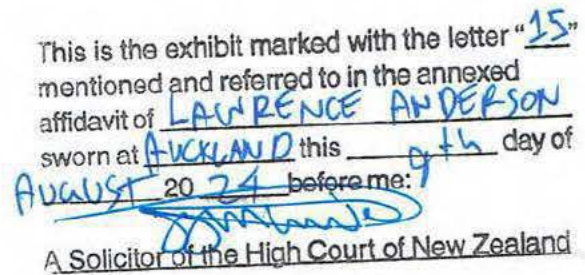 This is the exhibit marked with the letter "15"
mentioned and referred to in the annexed
affidavit of LAWRENCE ANDERSON
sworn at AUCKLAND this 9th day of
AUGUST 20 24 before me:
A Solicitor of the High Court of New Zealand